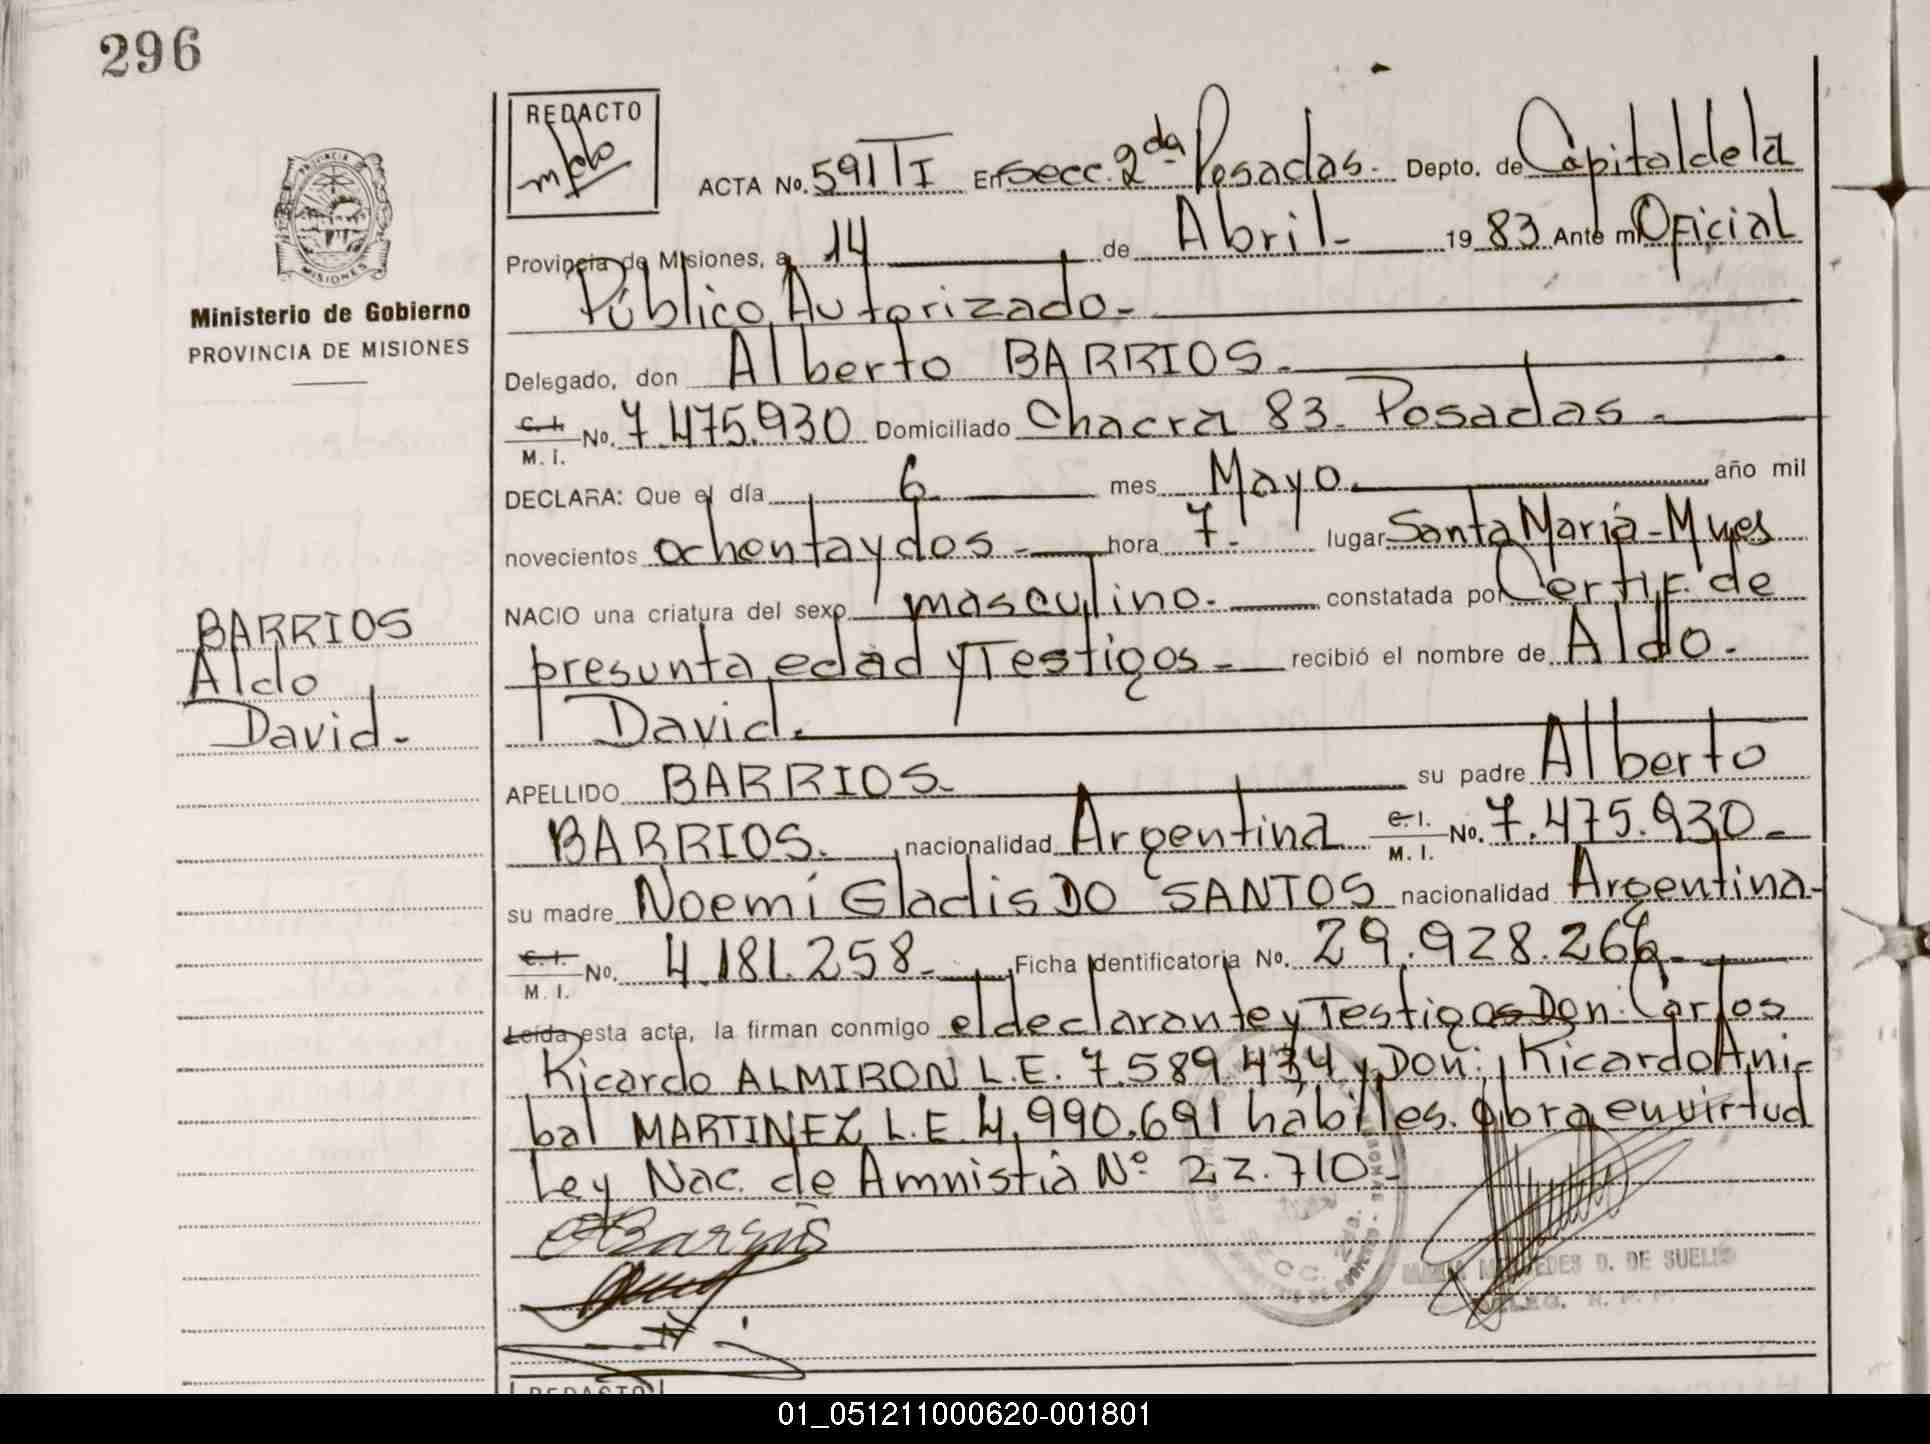 296
REDACTO
PROVINCIA
MISIONES
Ministerio de Gobierno
PROVINCIA DE MISIONES
BARRIOS
Aldo
David.-
ACTA No. 591 TI En Secc. 2da Posadas.- Depto. de Capital de la
Provincia de Misiones, a 14 de Abril.- 1983 Ante mi Oficial
Público Autorizado.-
Delegado, don Alberto BARRIOS.-
C. I. M. I. No. 7.475.930 Domiciliado Chacra 83. Posadas.-
DECLARA: Que el día 6 mes Mayo año mil
novecientos ochenta y dos.- hora 7.- lugar Santa María - Mnes
NACIO una criatura del sexo masculino.- constatada por Certif. de
presunta edad y Testigos.- recibió el nombre de Aldo.-
David.
APELLIDO BARRIOS.- su padre Alberto
BARRIOS. nacionalidad Argentina C. I. M. I. No. 7.475.930.-
su madre Noemi Gladis DO SANTOS nacionalidad Argentina-
C. I. M. I. No. 4.181.258.- Ficha Identificatoria No. 29.928.266.-
Leída esta acta, la firman conmigo el declarante y Testigos Don: Carlos
Ricardo ALMIRON L.E. 7.589.434 y Don: Ricardo Ani-
bal MARTINEZ L.E. 4.990.691 hábiles. Obra en virtud
Ley Nac. de Amnistia Nº 22.710.-
Barrios
SECC. 2da.
D. DE SUELI
REDACTO
01_051211000620-001801